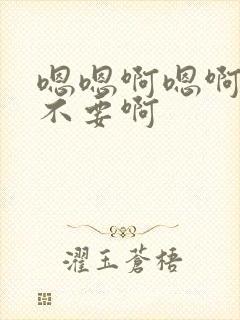 嗯嗯啊嗯啊
不要啊
濯玉蒼梧